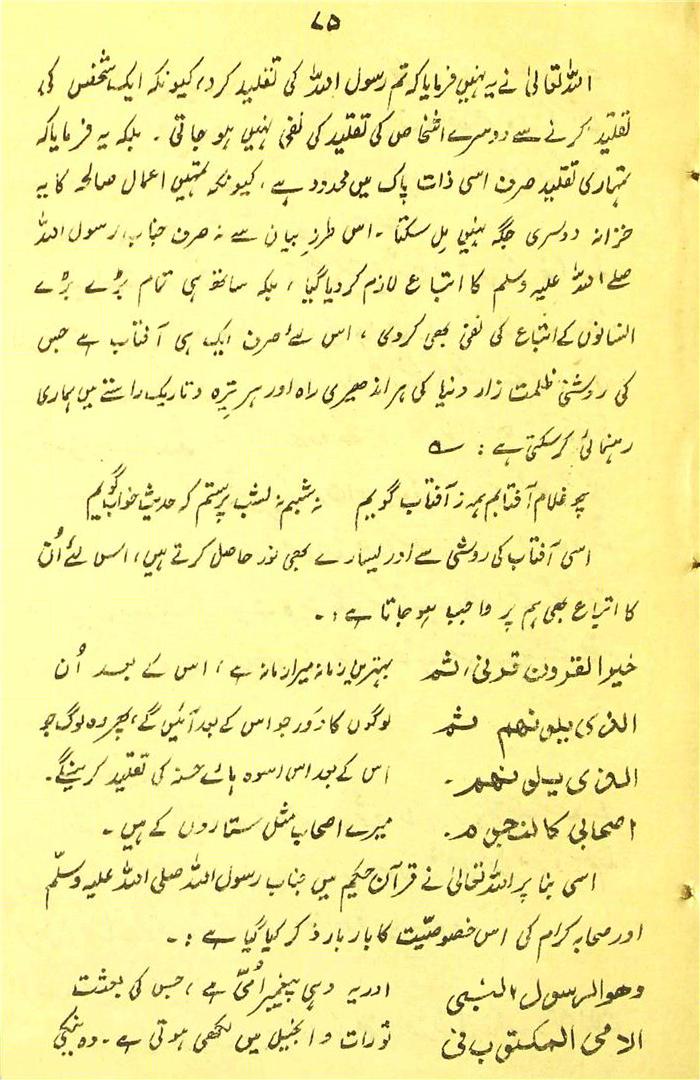 ۷۵
اللہ تعالیٰ نے یہ نہیں فرمایا کہ تم رسول اللہ کی تقلید کرو، کیونکہ ایک شخص کی
تقلید کرنے سے دوسرے اشخاص کی تقلید کی نفی نہیں ہو جاتی ۔ بلکہ یہ فرمایا کہ
تمہاری تقلید صرف اسی ذات پاک میں محدود ہے، کیونکہ تمہیں اعمال صالحہ کا یہ
خزانہ دوسری جگہ نہیں مل سکتا ۔ اس طرز بیان سے نہ صرف جناب رسول اللہ
صلے اللہ علیہ وسلم کا اتباع لازم کر دیا گیا ، بلکہ ساتھ ہی تمام بڑے بڑے
انسانوں کے اتباع کی نفی بھی کر دی ، اس لئے صرف ایک ہی آفتاب ہے جس
کی روشنی ظلمت زار دنیا کی ہر اندھیری راہ اور ہر تیرہ و تاریک راستے میں ہماری
رہنمائی کر سکتی ہے : ؎
چو غلام آفتابم ہمہ ز آفتاب گویم نہ شبم نہ شب پرستم کہ حدیث خواب گویم
اسی آفتاب کی روشنی سے اور ستارے بھی نور حاصل کرتے ہیں، اس لئے اُن
کا اتباع بھی ہم پر واجب ہو جاتا ہے :۔
خیر القرون قرنی، ثم بہترین زمانہ میرا زمانہ ہے ، اس کے بعد اُن
الذی یلونہم ثم لوگوں کا دَور جو اس کے بعد آئیں گے، پھر وہ لوگ جو
الذی یلونہم ۔ اس کے بعد اس اسوہ ہائے حسنہ کی تقلید کرینگے۔
اصحابی کالنجوم ۔ میرے اصحاب مثل ستاروں کے ہیں ۔
اسی بنا پر اللہ تعالیٰ نے قرآن حکیم میں جناب رسول اللہ صلی اللہ علیہ وسلّم
اور صحابہ کرام کی اس خصوصیّت کا بار بار ذکر کیا گیا ہے :۔
وھو الرسول النبی اور یہ وہی پیغمبر اُمّی ہے ، جس کی بعثت
الامی المکتوب فی تورات و انجیل میں لکھی ہوئی ہے ۔ وہ نیکی